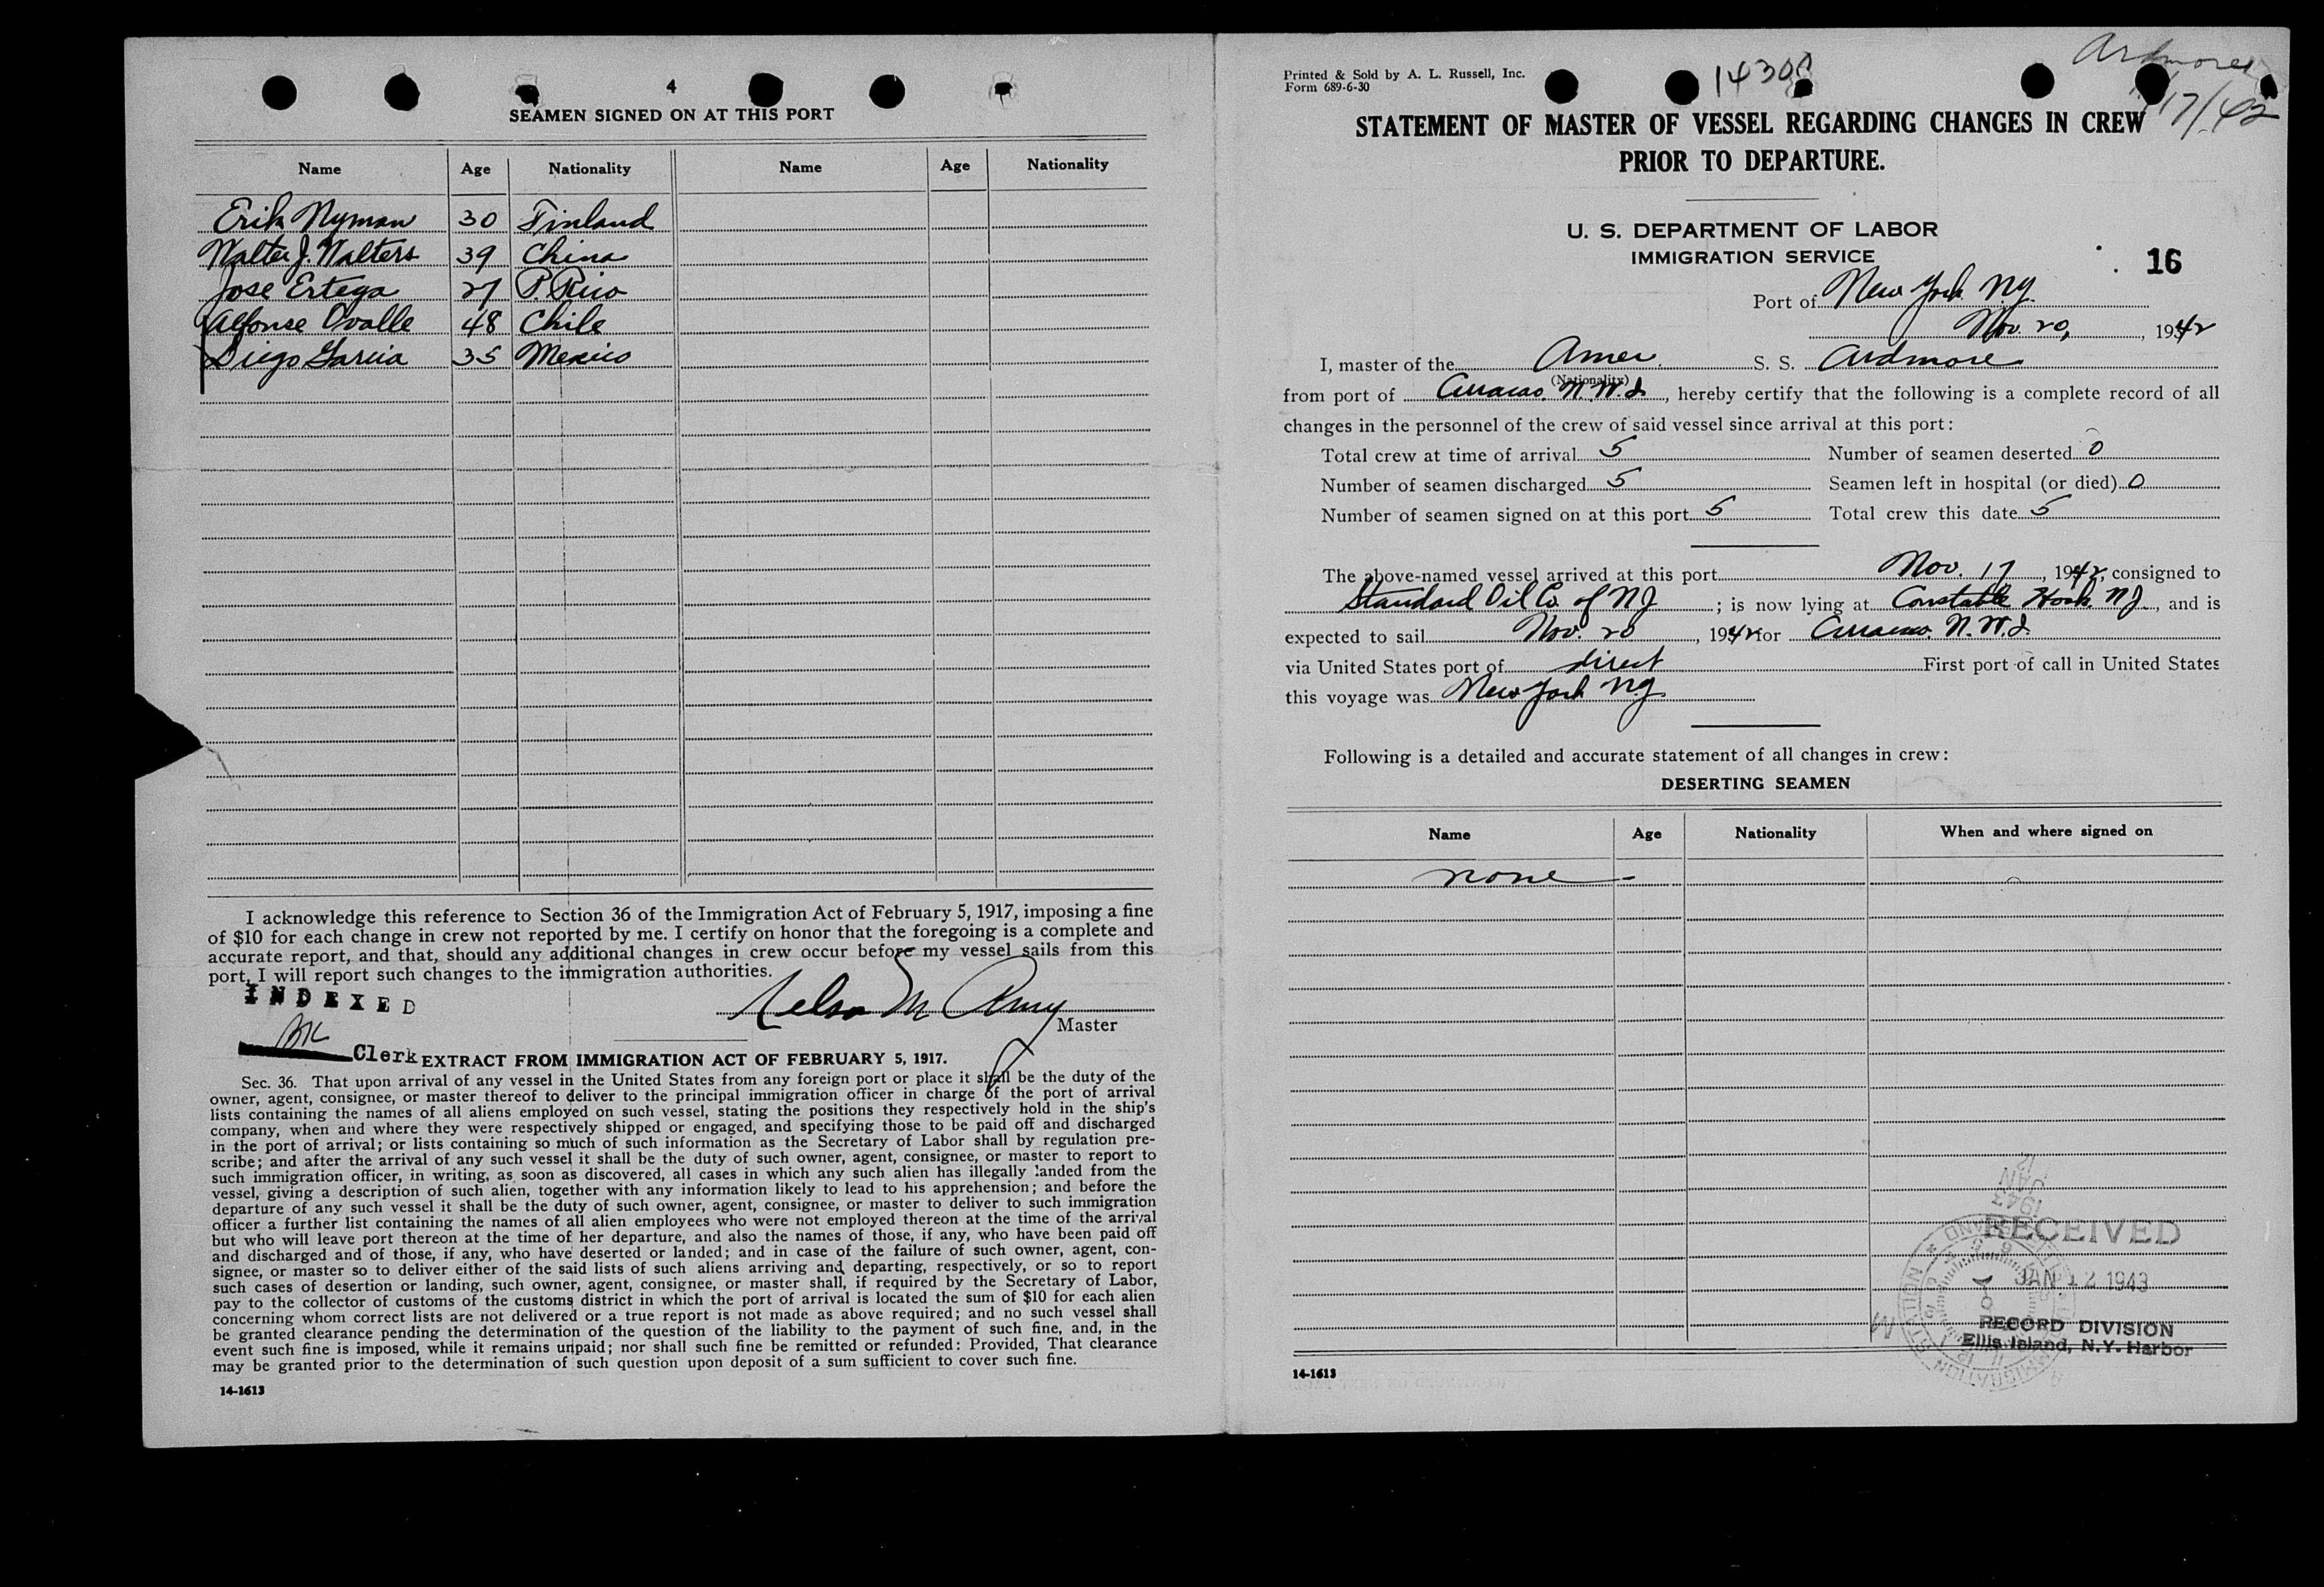 4
SEAMEN SIGNED ON AT THIS PORT
Name Age Nationality Name Age Nationality
Erik Nyman 30 Finland
Walter J. Walters 39 China
Jose Ertega 27 P. Rico
Alfonse Ovalle 48 Chile
Diego Garcia 35 Mexico
I acknowledge this reference to Section 36 of the Immigration Act of February 5, 1917, imposing a fine
of $10 for each change in crew not reported by me. I certify on honor that the foregoing is a complete and
accurate report, and that, should any additional changes in crew occur before my vessel sails from this
port, I will report such changes to the immigration authorities.
INDEXED
Nelson M
Master
Clerk
EXTRACT FROM IMMIGRATION ACT OF FEBRUARY 5, 1917.
Sec. 36. That upon arrival of any vessel in the United States from any foreign port or place it shall be the duty of the
owner, agent, consignee, or master thereof to deliver to the principal immigration officer in charge of the port of arrival
lists containing the names of all aliens employed on such vessel, stating the positions they respectively hold in the ship's
company, when and where they were respectively shipped or engaged, and specifying those to be paid off and discharged
in the port of arrival; or lists containing so much of such information as the Secretary of Labor shall by regulation pre-
scribe; and after the arrival of any such vessel it shall be the duty of such owner, agent, consignee, or master to report to
such immigration officer, in writing, as soon as discovered, all cases in which any such alien has illegally landed from the
vessel, giving a description of such alien, together with any information likely to lead to his apprehension; and before the
departure of any such vessel it shall be the duty of such owner, agent, consignee, or master to deliver to such immigration
officer a further list containing the names of all alien employees who were not employed thereon at the time of the arrival
but who will leave port thereon at the time of her departure, and also the names of those, if any, who have been paid off
and discharged and of those, if any, who have deserted or landed; and in case of the failure of such owner, agent, con-
signee, or master so to deliver either of the said lists of such aliens arriving and departing, respectively, or so to report
such cases of desertion or landing, such owner, agent, consignee, or master shall, if required by the Secretary of Labor,
pay to the collector of customs of the customs district in which the port of arrival is located the sum of $10 for each alien
concerning whom correct lists are not delivered or a true report is not made as above required; and no such vessel shall
be granted clearance pending the determination of the question of the liability to the payment of such fine, and, in the
event such fine is imposed, while it remains unpaid; nor shall such fine be remitted or refunded: Provided, That clearance
may be granted prior to the determination of such question upon deposit of a sum sufficient to cover such fine.
14-1613
Printed & Sold by A. L. Russell, Inc.
Form 689-6-30
Ardmore
STATEMENT OF MASTER OF VESSEL REGARDING CHANGES IN CREW
PRIOR TO DEPARTURE.
U. S. DEPARTMENT OF LABOR
IMMIGRATION SERVICE
16
Port of New York N.Y.
Nov. 20, 1942
I, master of the Amer. S. S. Ardmore
(Nationality)
from port of Curacao. N.W.I., hereby certify that the following is a complete record of all
changes in the personnel of the crew of said vessel since arrival at this port:
Total crew at time of arrival 5 Number of seamen deserted 0
Number of seamen discharged 5 Seamen left in hospital (or died) 0
Number of seamen signed on at this port 5 Total crew this date 5
The above-named vessel arrived at this port Nov. 17, 1942, consigned to
Standard Oil Co. of NJ; is now lying at Constable Hook NJ., and is
expected to sail Nov. 20, 1942 for Curacao. N.W.I.
via United States port of direct First port of call in United States
this voyage was New York N.Y.
Following is a detailed and accurate statement of all changes in crew:
DESERTING SEAMEN
Name Age Nationality When and where signed on
none
RECEIVED
JAN 12 1943
RECORD DIVISION
Ellis Island, N.Y. Harbor
14-1613